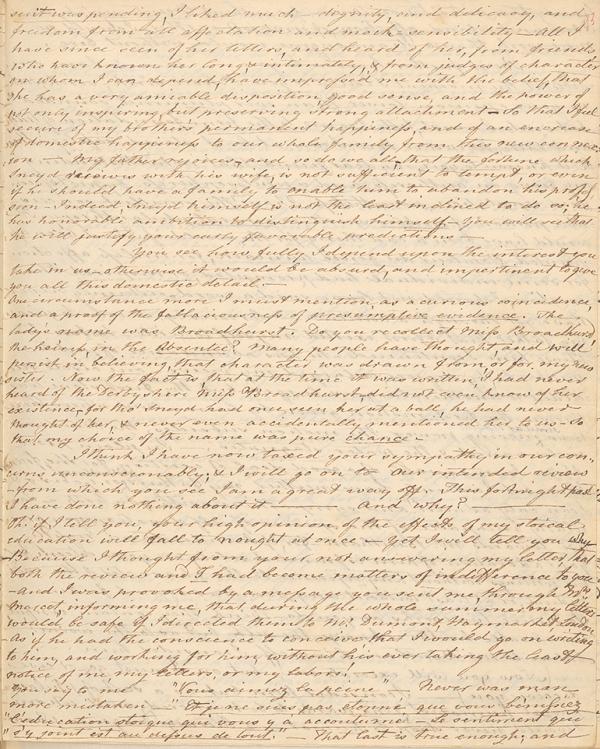 sent was pending, I liked much — dignity, and delicacy, and
freedom from all affectation and mock sensibility — All I
have since seen of her letters, and heard of her, from friends
who have known her long & intimately, & from judges of character
on whom I can depend, have impressed me with the belief that
she has a very amiable disposition, good sense, and the power of
not only inspiring but preserving strong attachment — So that I feel
secure of my brothers permanent happiness, and of an encrease
of domestic happiness to our whole family from this new connex-
ion — My father rejoices, and so do we all, that the fortune which
Sneyd receives with his wife, is not sufficient to tempt, or even
if he should have a family, to enable him to abandon his profes-
sion — Indeed Sneyd himself is not the least inclined to do so; he
has honorable ambition to distinguish himself — You will see that
he will justify your early favourable predictions —
You see how fully I depend upon the interest you
take in us — otherwise it would be absurd, and impertinent to give
you all this domestic detail —
One circumstance more I must mention, as a curious coincidence,
and a proof of the fallaciousness of presumptive evidence. The
lady's name was Broadhurst. Do you recollect Miss Broadhurst
the heiress, in the Absentee? Many people have thought, and will
persist in believing, that character was drawn from, or for, my new
sister. Now the fact is, that at the time it was written, I had never
heard of the Derbyshire Miss Broadhurst, did not even know of her
existence, for tho' Sneyd had once seen her at a ball, he had never
thought of her, & never even accidentally mentioned her to us — So
that my choice of the name was pure chance —
I think I have now taxed your sympathy in our con-
cerns unconscionably; & I will go on to our intended review
— from which you see I am a great way off. This fortnight past
I have done nothing about it — And why? —
Oh! if I tell you, your high opinion of the effects of my stoical
education will fall to nought at once — Yet I will tell you why
— Because I thought from your not answering my letter, that
both the review and I had become matters of indifference to you
— and I was provoked by a message you sent me through Mrs
Marcet, informing me, that during the whole summer my letters
would be safe if I directed them to Mr. Dumont, Haymarket London,
as if he had the conscience to conceive that I would go on writing
to him, and working for him, without his ever taking the least
notice of me, my letters, or my labors. —
You say to me "Vous aimez la peine" — Never was man
more mistaken — "Et je ne suis pas etonné que vous benissiez
"L'education stoique qui vous y a accoutumé — Le sentiment qui
"s'y joint est au dessus de tout" — That last is true enough; and